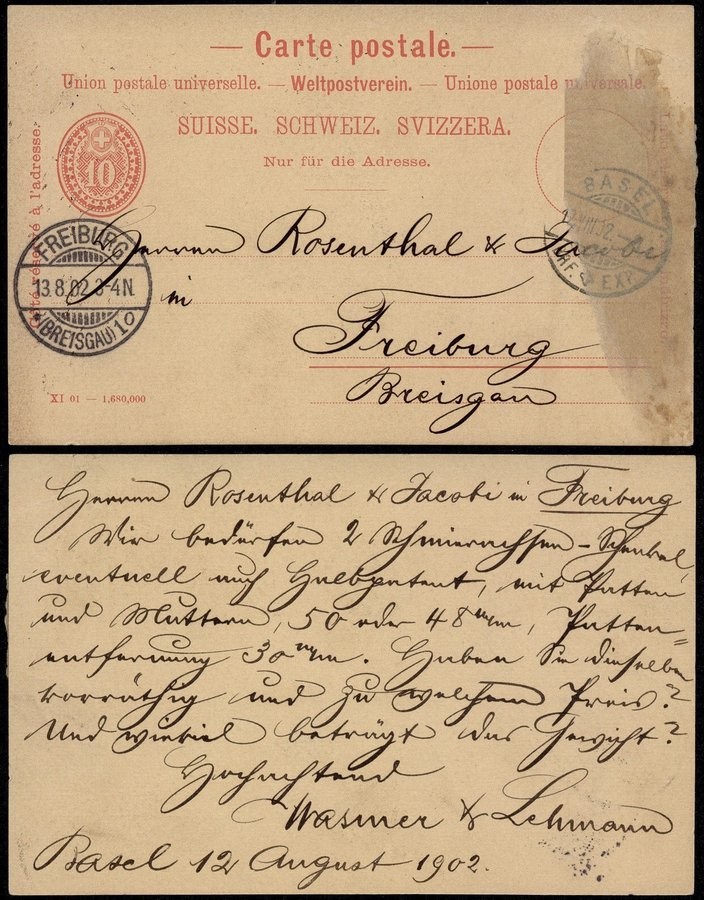 — Carte postale. —
Union postale universelle. — Weltpostverein. — Unione postale universale.
SUISSE. SCHWEIZ. SVIZZERA.
Nur für die Adresse.
Côté réservé à l'adresse.
10
FREIBURG
13.8.02.3-4N.
(BREISGAU) 1
BASEL
BRF. EXP.
Herren Rosenthal & Jacobi
in
Freiburg
Breisgau
XI 01 — 1,680,000
Herren Rosenthal & Jacobi in Freiburg
Wir bedürfen 2 Schmierachsen-Schenkel
eventuell auch Halbpatent, mit Patten
und Muttern, 50 oder 48 m/m, Patten-
entfernung 30 m/m. Haben Sie dieselben
vorräthig und zu welchem Preis?
Und wieviel beträgt das Gewicht?
Hochachtend
Wasmer & Lehmann
Basel 12 August 1902.